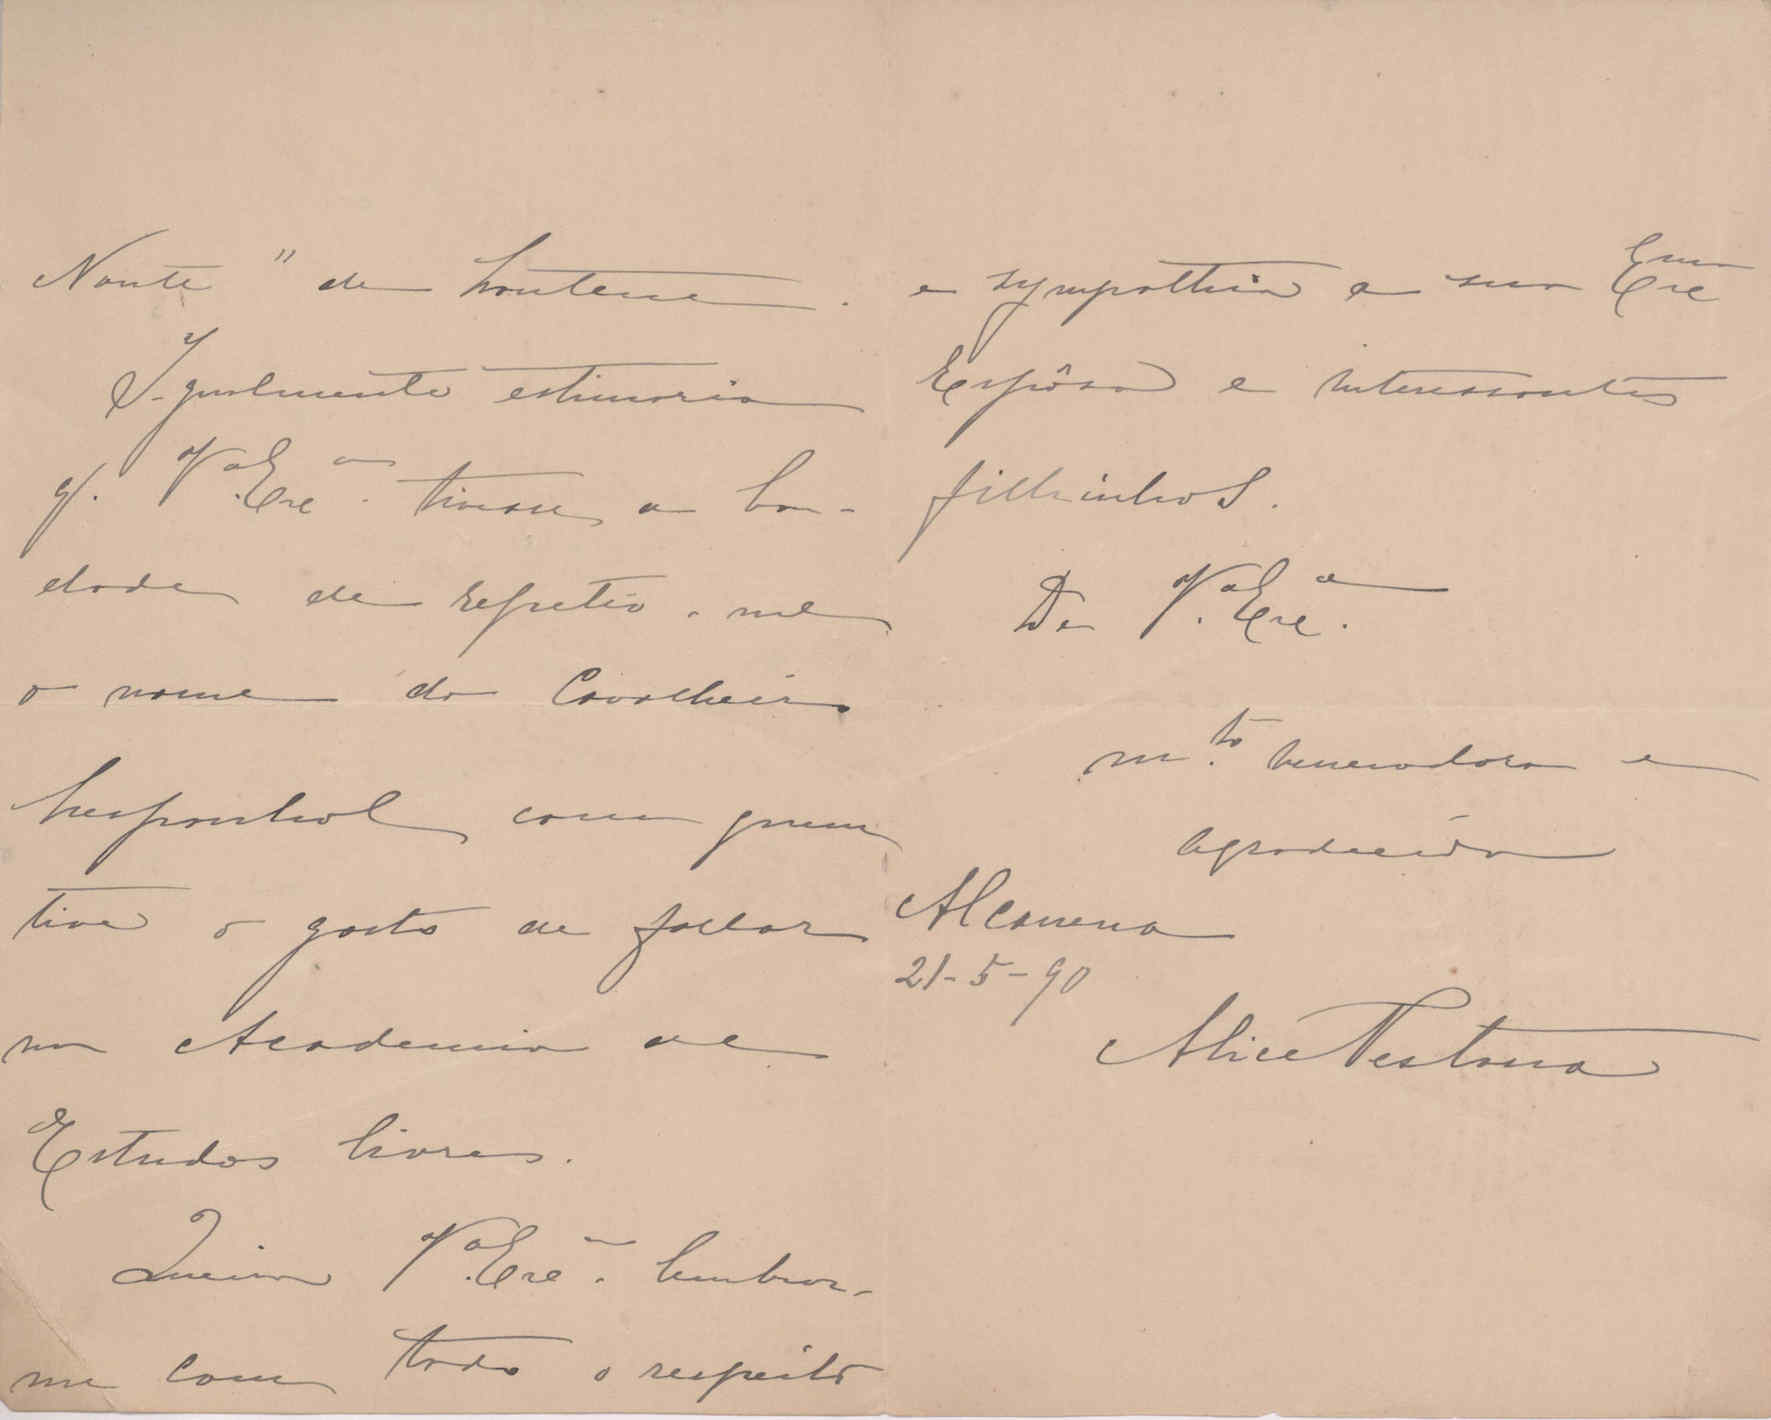 Norte" de hontem.
Igualmente estimaria
q. V.ª Exc.ª tivesse a bon-
dade de repetir-me
o nome do Cavalheiro
hespanhol com quem
tive o gosto de fallar
na Academia de
Estudos livres.
Queira V.ª Exc.ª lembrar-
me com todo o respeito
e sympathia a sua Exma
Espôsa e interessantes
filhinhos.
De V.ª Exc.ª
m.to veneradora e
agradecida
Alcanena
21-5-90
Alice Pestana